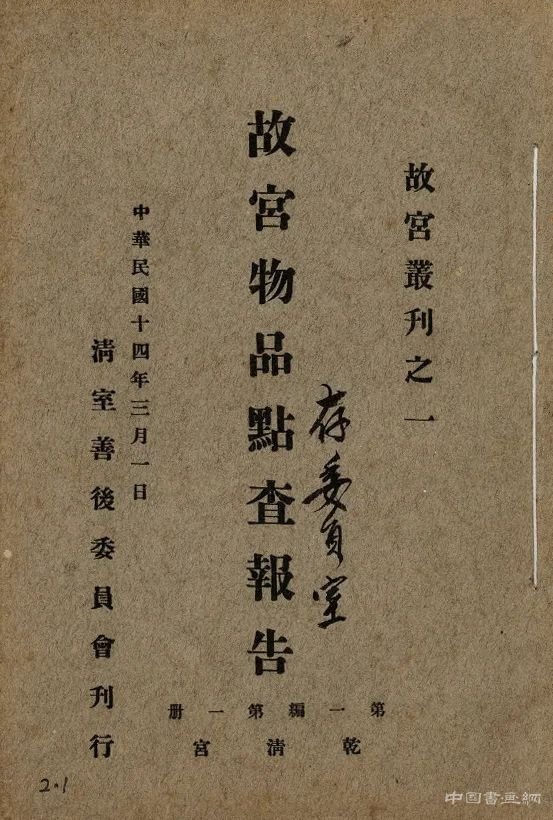 故宮叢刊之一
存委員室
故宮物品點查報告
第一編第一册
乾清宮
中華民國十四年三月一日
清室善後委員會刊行
2.1
中国書画網